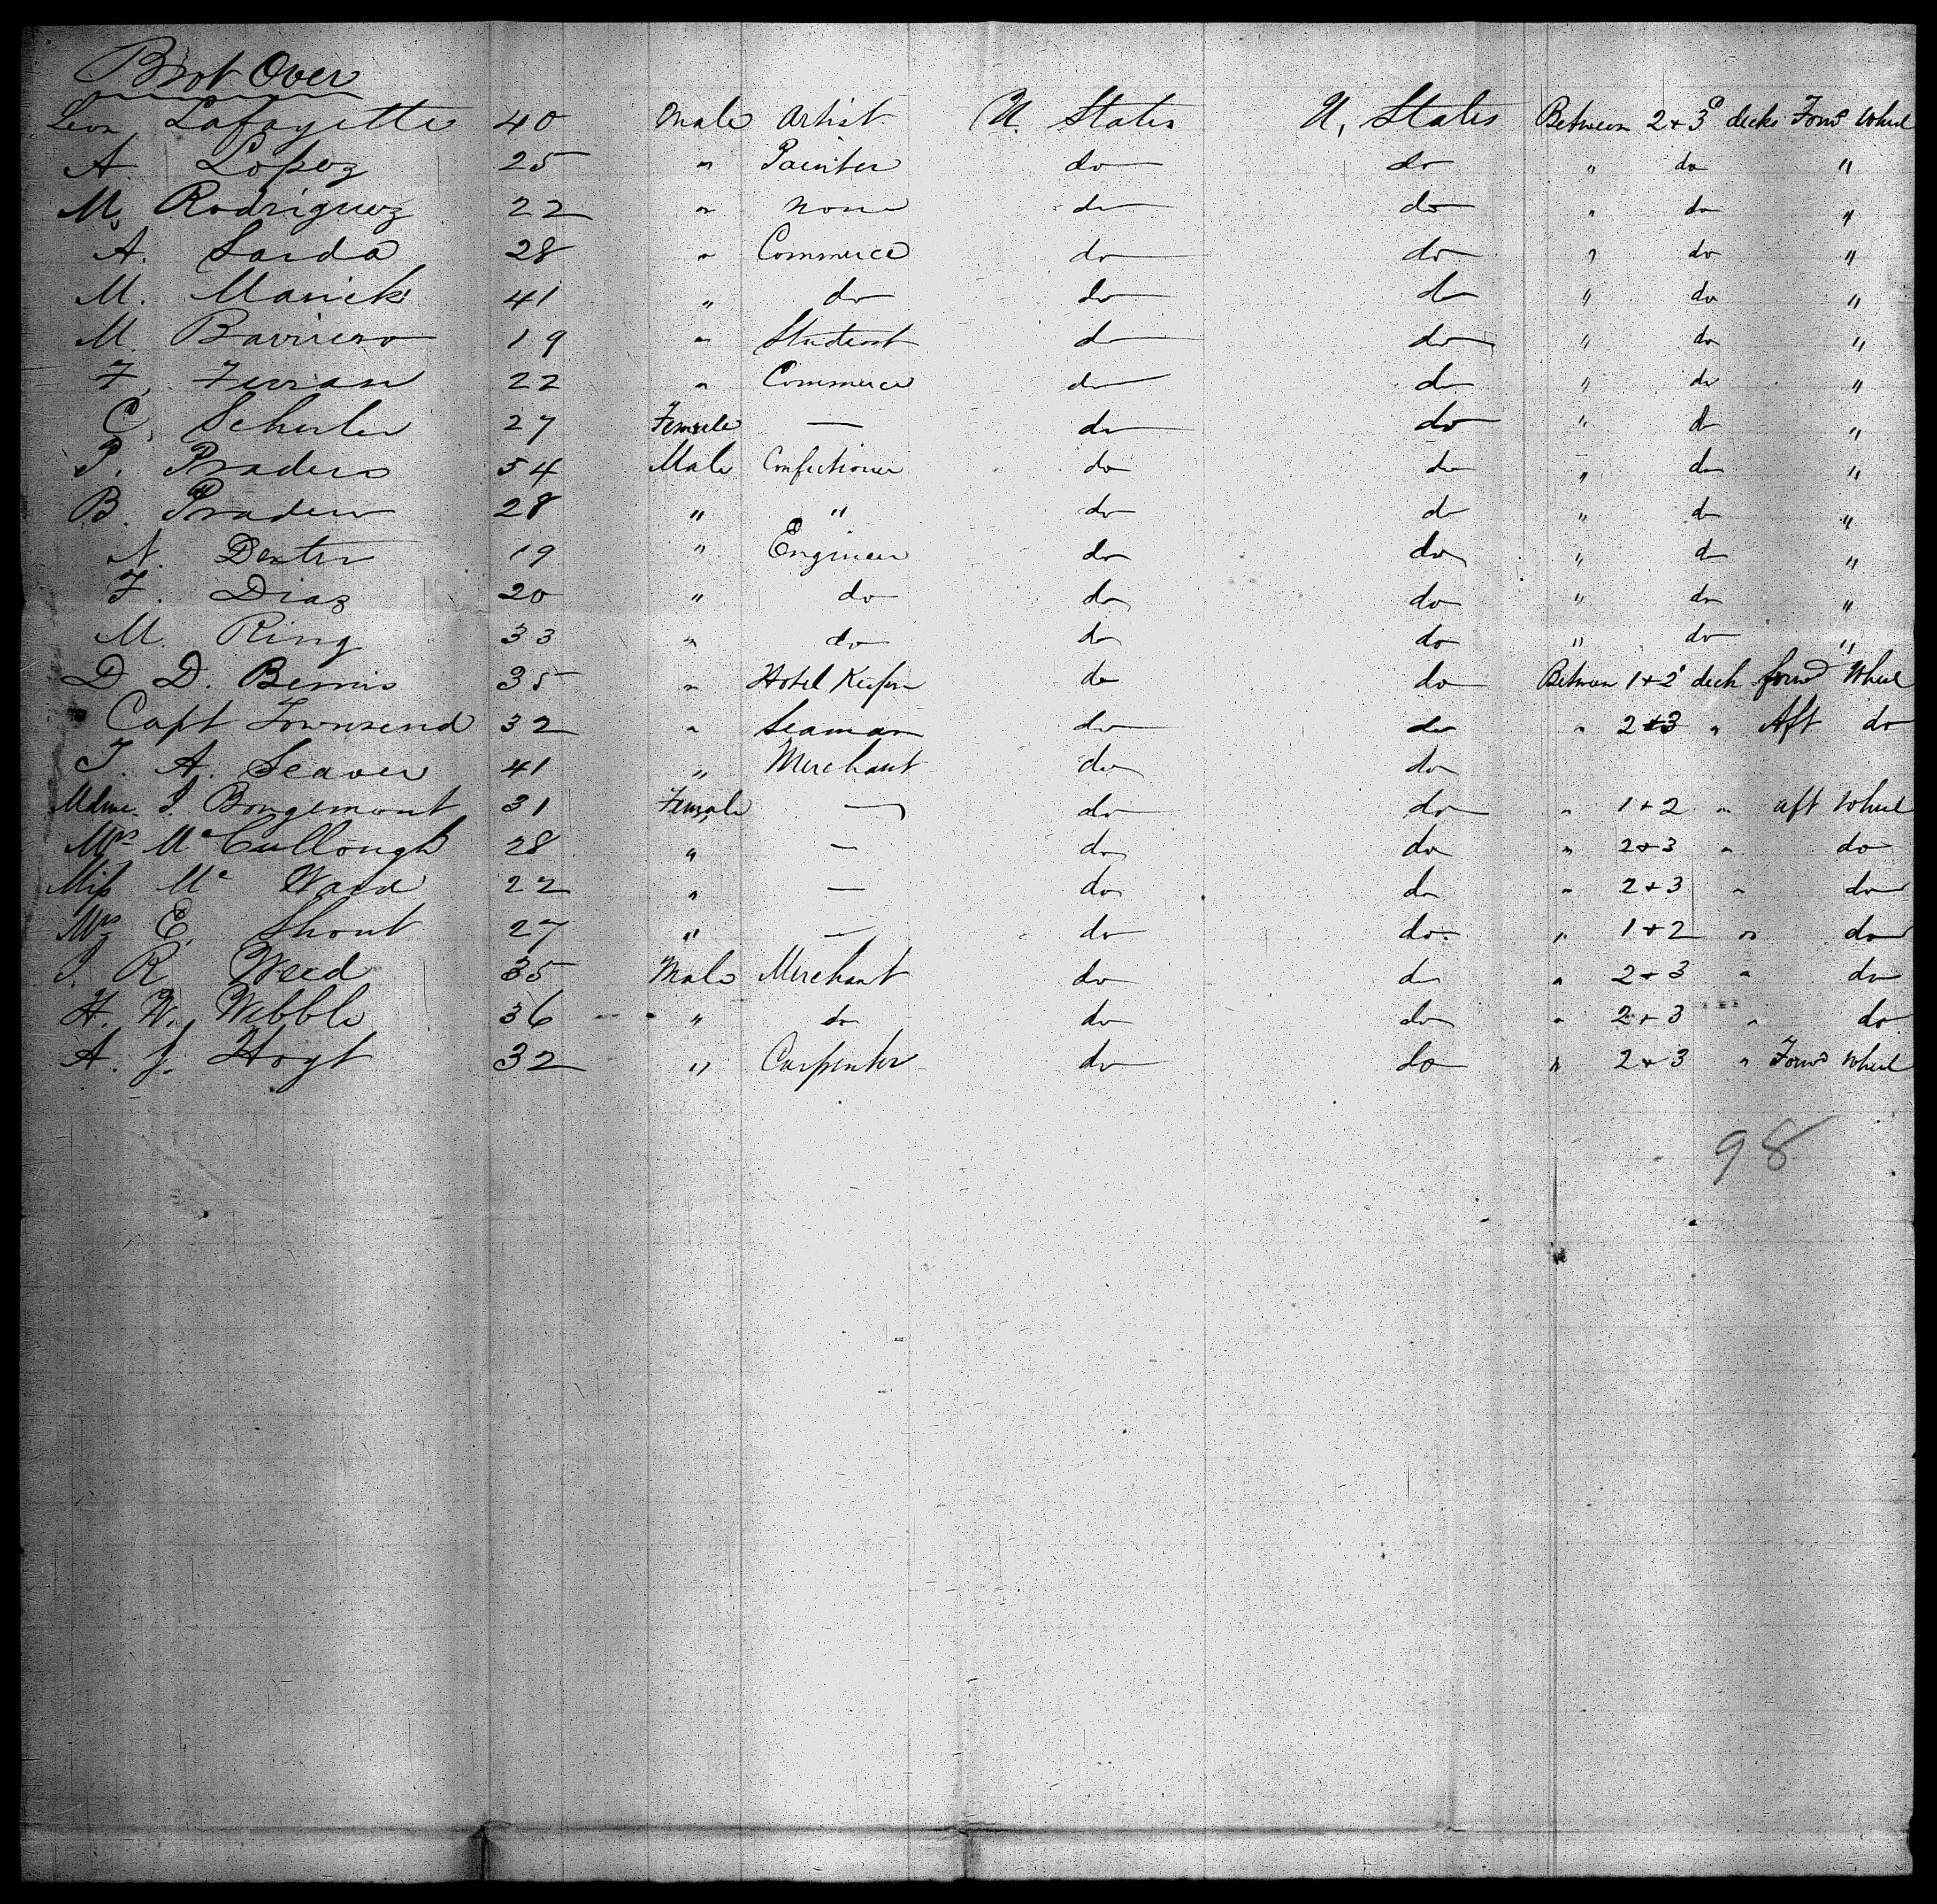 Brot Over
Leon Lafayette 40 Male Artist U. States U. States Between 2 + 3d decks Forwd Wheel
A. Lopez 25 " Painter do do " do "
M. Rodriguez 22 " none do do " do "
A. Sarda 28 " Commerce do do " do "
M. Marick 41 " do do do " do "
M. Barriero 19 " Student do do " do "
F. Ferran 22 " Commerce do do " do "
C. Schuler 27 Female — do do " do "
P. Pradera 54 Male Confectioner do do " do "
B. Pradera 28 " " do do " do "
N. Dexter 19 " Engineer do do " do "
F. Diaz 20 " do do do " do "
M. Ring 33 " do do do " do "
D. D. Bemis 35 " Hotel Keeper do do Between 1 + 2d deck forwd Wheel
Capt Townsend 32 " Seaman do do " 2 + 3 " Aft do
T. A. Seaver 41 " Merchant do do
Mdme. I. Bongemont 31 Female — do do " 1 + 2 " aft Wheel
Mrs McCullough 28 " — do do " 2 + 3 " do
Miss Mc Ward 22 " — do do " 2 + 3 " do
Mrs E. Shout 27 " — do do " 1 + 2 " do
I. R. Weed 35 Male Merchant do do " 2 + 3 " do
H. W. Webble 36 " do do do " 2 + 3 " do
A. J. Hoyt 32 " Carpenter do do " 2 + 3 " Forwd Wheel
98